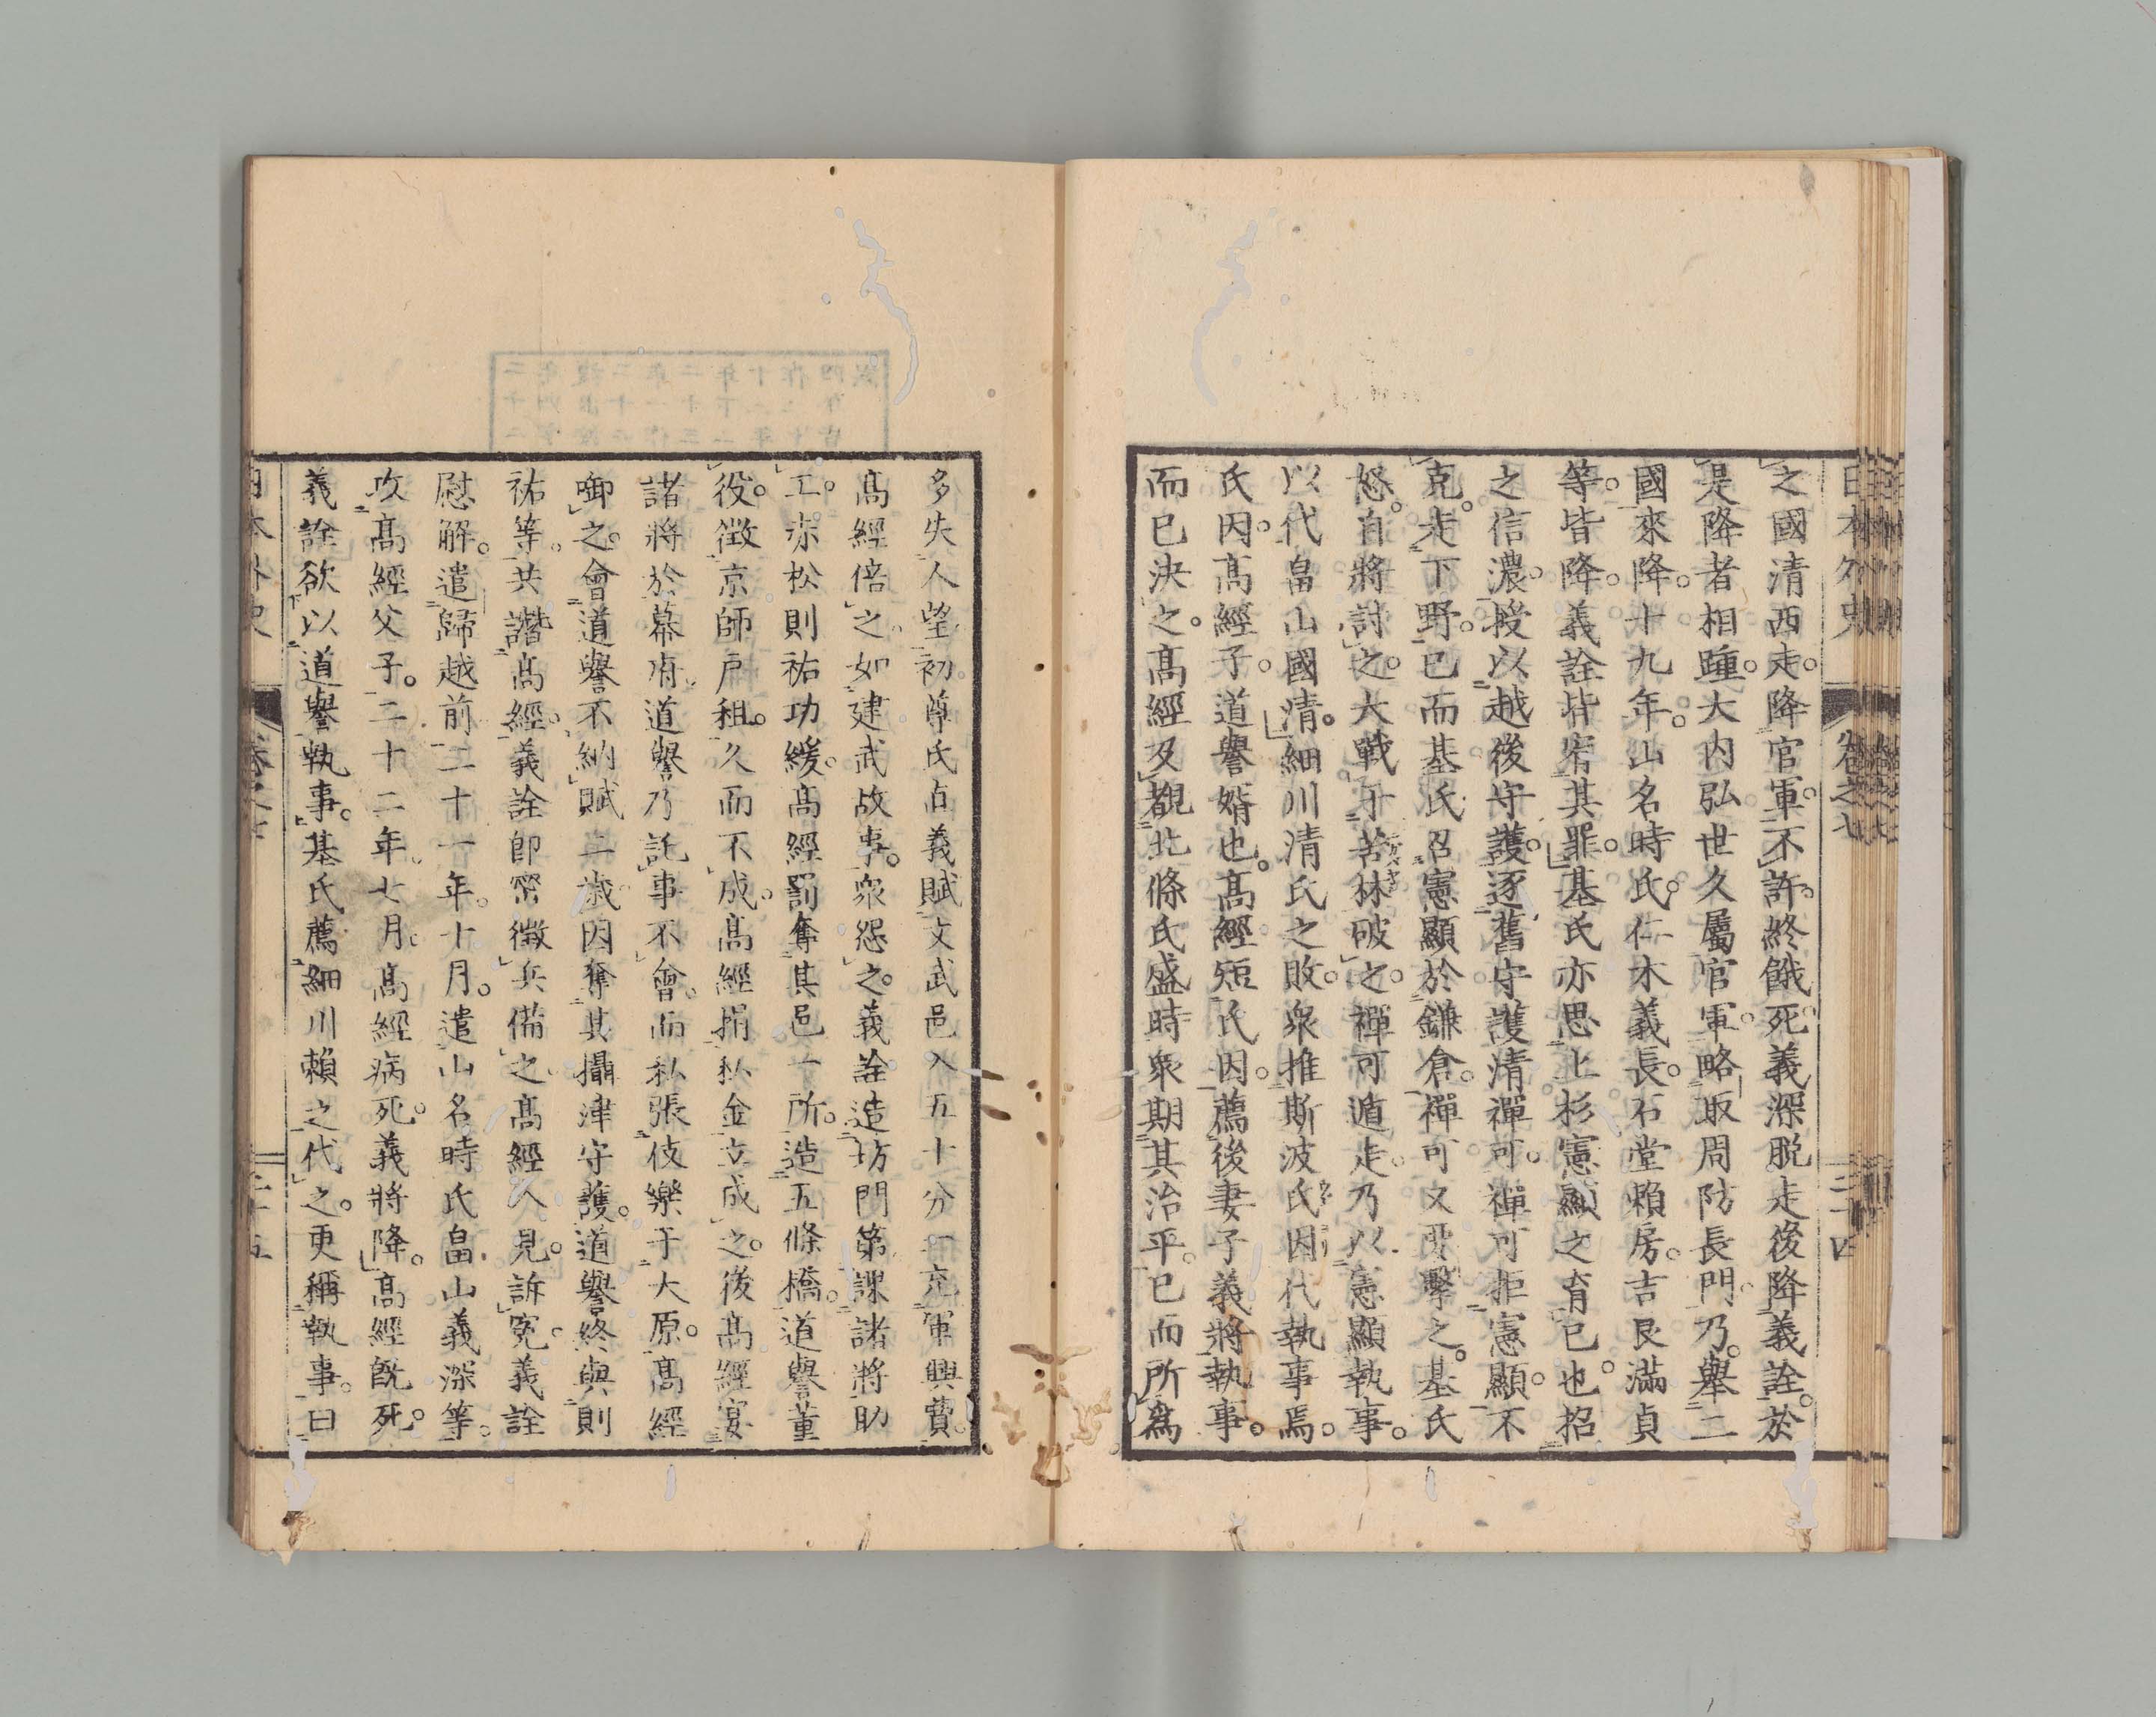 日本外史 卷之七 二十四
之國清西走。降官軍。不許。終餓死。義深脱走後降義詮。於
是降者相踵。大内弘世久屬官軍。略取周防長門。乃擧二
國來降。十九年。山名時氏。仁木義長。石堂賴房。吉良滿貞
等。皆降。義詮皆宥其罪。基氏亦思上杉憲顯之育已也。招
之信濃。授以越後守護。逐舊守護清禪可。禪可拒憲顯。不
克。走下野。已而基氏召憲顯於鎌倉。禪可又要擊之。基氏
怒。自將討之。大戰于苦林破之。禪可遁走。乃以憲顯執事。
以代畠山國清。細川清氏之敗。衆推斯波氏因代執事焉。
氏因。高經子。道譽婿也。高經短氏因。薦後妻子義將執事。
而已決之。高經及覩北條氏盛時。衆期其治平。已而所爲
多失人望。初尊氏直義賦文武邑入五十分一充軍興費。
高經倍之。如建武故事。衆怨之。義詮造坊門第。課諸將助
工。赤松則祐功緩。高經罰奪其邑一所。造五條橋。道譽董
役。徴京師戸租。久而不成。高經捐私金立成之。後高經宴
諸將於幕府。道譽乃託事不會。而私張伎樂于大原。高經
啣之。會道譽不納賦二歳。因奪其攝津守護。道譽終與則
祐等。共譖高經。義詮卽密徴兵備之。高經入見。訴冤。義詮
慰解。遣歸越前。二十一年。十月。遣山名時氏畠山義深等。
攻高經父子。二十二年。七月。高經病死。義將降。高經既死。
義詮欲以道譽執事。基氏薦細川賴之代之。更稱執事。曰
日本外史 卷之七 二十五